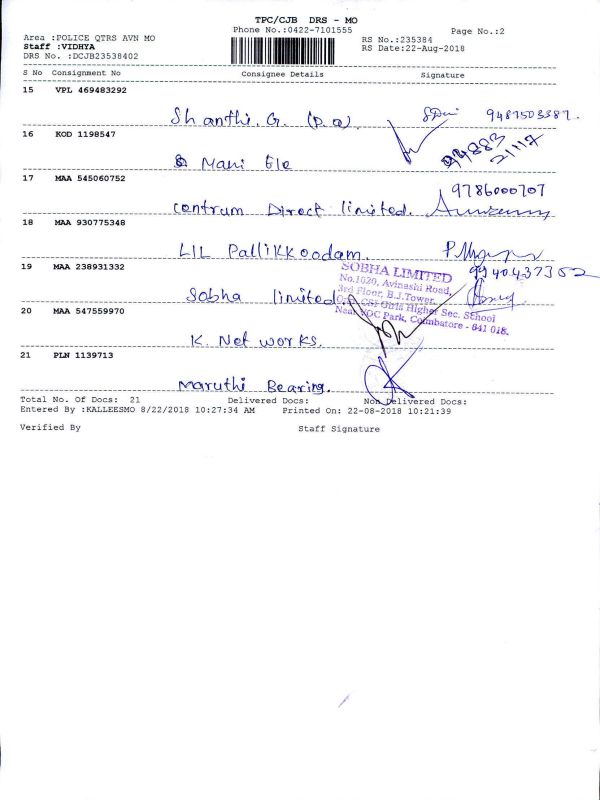 TPC/CJB DRS - MO
Phone No.:0422-7101555
Page No.:2
Area :POLICE QTRS AVN MO
RS No.:235384
Staff :VIDHYA
RS Date:22-Aug-2018
DRS No. :DCJB23538402
S No Consignment No Consignee Details Signature
15 VPL 469483292
Shanthi. G. (P.a) 9487503387.
16 KOD 1198547
Mani Ele 94883
21117
17 MAA 545060752
9786000707
Centrum Direct limited.
18 MAA 930775348
LIL Pallikkoodam.
19 MAA 238931332
9940437352
Sobha limited.
SOBHA LIMITED
No.1020, Avinashi Road,
3rd Floor, B.J.Tower,
Opp. CSI Girls Higher Sec. School
Near VOC Park, Coimbatore - 641 018.
20 MAA 547559970
K. Net works.
21 PLN 1139713
Maruthi Bearing.
Total No. Of Docs: 21 Delivered Docs: Non Delivered Docs:
Entered By :KALLEESMO 8/22/2018 10:27:34 AM Printed On: 22-08-2018 10:21:39
Verified By Staff Signature